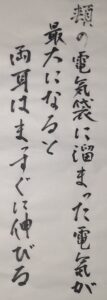 頬の電気袋に溜まった電気が
最大になると
両耳はまっすぐに伸びる